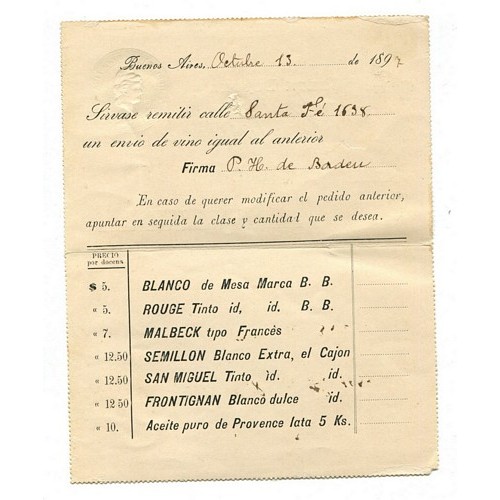 Buenos Aires, Octubre 13 de 1897
Sírvase remitir calle Santa Fé 1638
un envio de vino igual al anterior
Firma P. H. de Borden
En caso de querer modificar el pedido anterior,
apuntar en seguida la clase y cantidad que se desea.
PRECIO
por docena
$ 5. BLANCO de Mesa Marca B. B.
« 5. ROUGE Tinto id, id. B. B.
« 7. MALBECK tipo Francés
« 12.50 SEMILLON Blanco Extra, el Cajon
« 12.50 SAN MIGUEL Tinto id. id.
« 12 50 FRONTIGNAN Blanco dulce id.
« 10. Aceite puro de Provence lata 5 Ks.